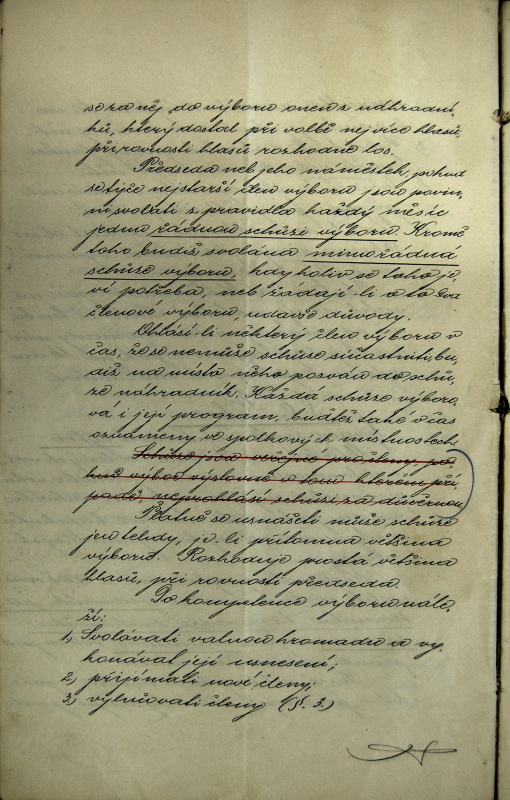 se za něj do výboru onen z náhradní-
ků, který dostal při volbě nejvíce hlasů,
při rovnosti hlasů rozhodne los.
Předseda neb jeho náměstek, pokud
se týče nejstarší člen výboru jsou povin-
ni svolati z pravidla každý měsíc
jednu řádnou schůzi výboru. Kromě
toho budiž svolána mimořádná
schůze výboru, kdy koliv se toho je-
ví potřeba, neb žádají-li o to dva
členové výboru, udavše důvody.
Ohlásí-li některý člen výboru v
čas, že se nemůže schůze súčastniti, bu-
diž na místo něho pozván do schů-
ze náhradník. Každá schůze výboro-
vá i její program, buďtež také v čas
oznámeny ve spolkových místnostech.
Schůze jsou veřejné pro členy, po-
kud výbor výslovně v tom kterém pří-
padě, neprohlásí schůzi za důvěrnou.
Platně se usnášeti může schůze
jen tehdy, je-li přítomna většina
výboru. Rozhoduje prostá většina
hlasů, při rovnosti předseda.
Do kompetence výboru nále-
ží:
1, Svolávati valnou hromadu a vy-
konávat její usnesení;
2, přijímati nové členy;
3, vylučovati členy (§. 3.)